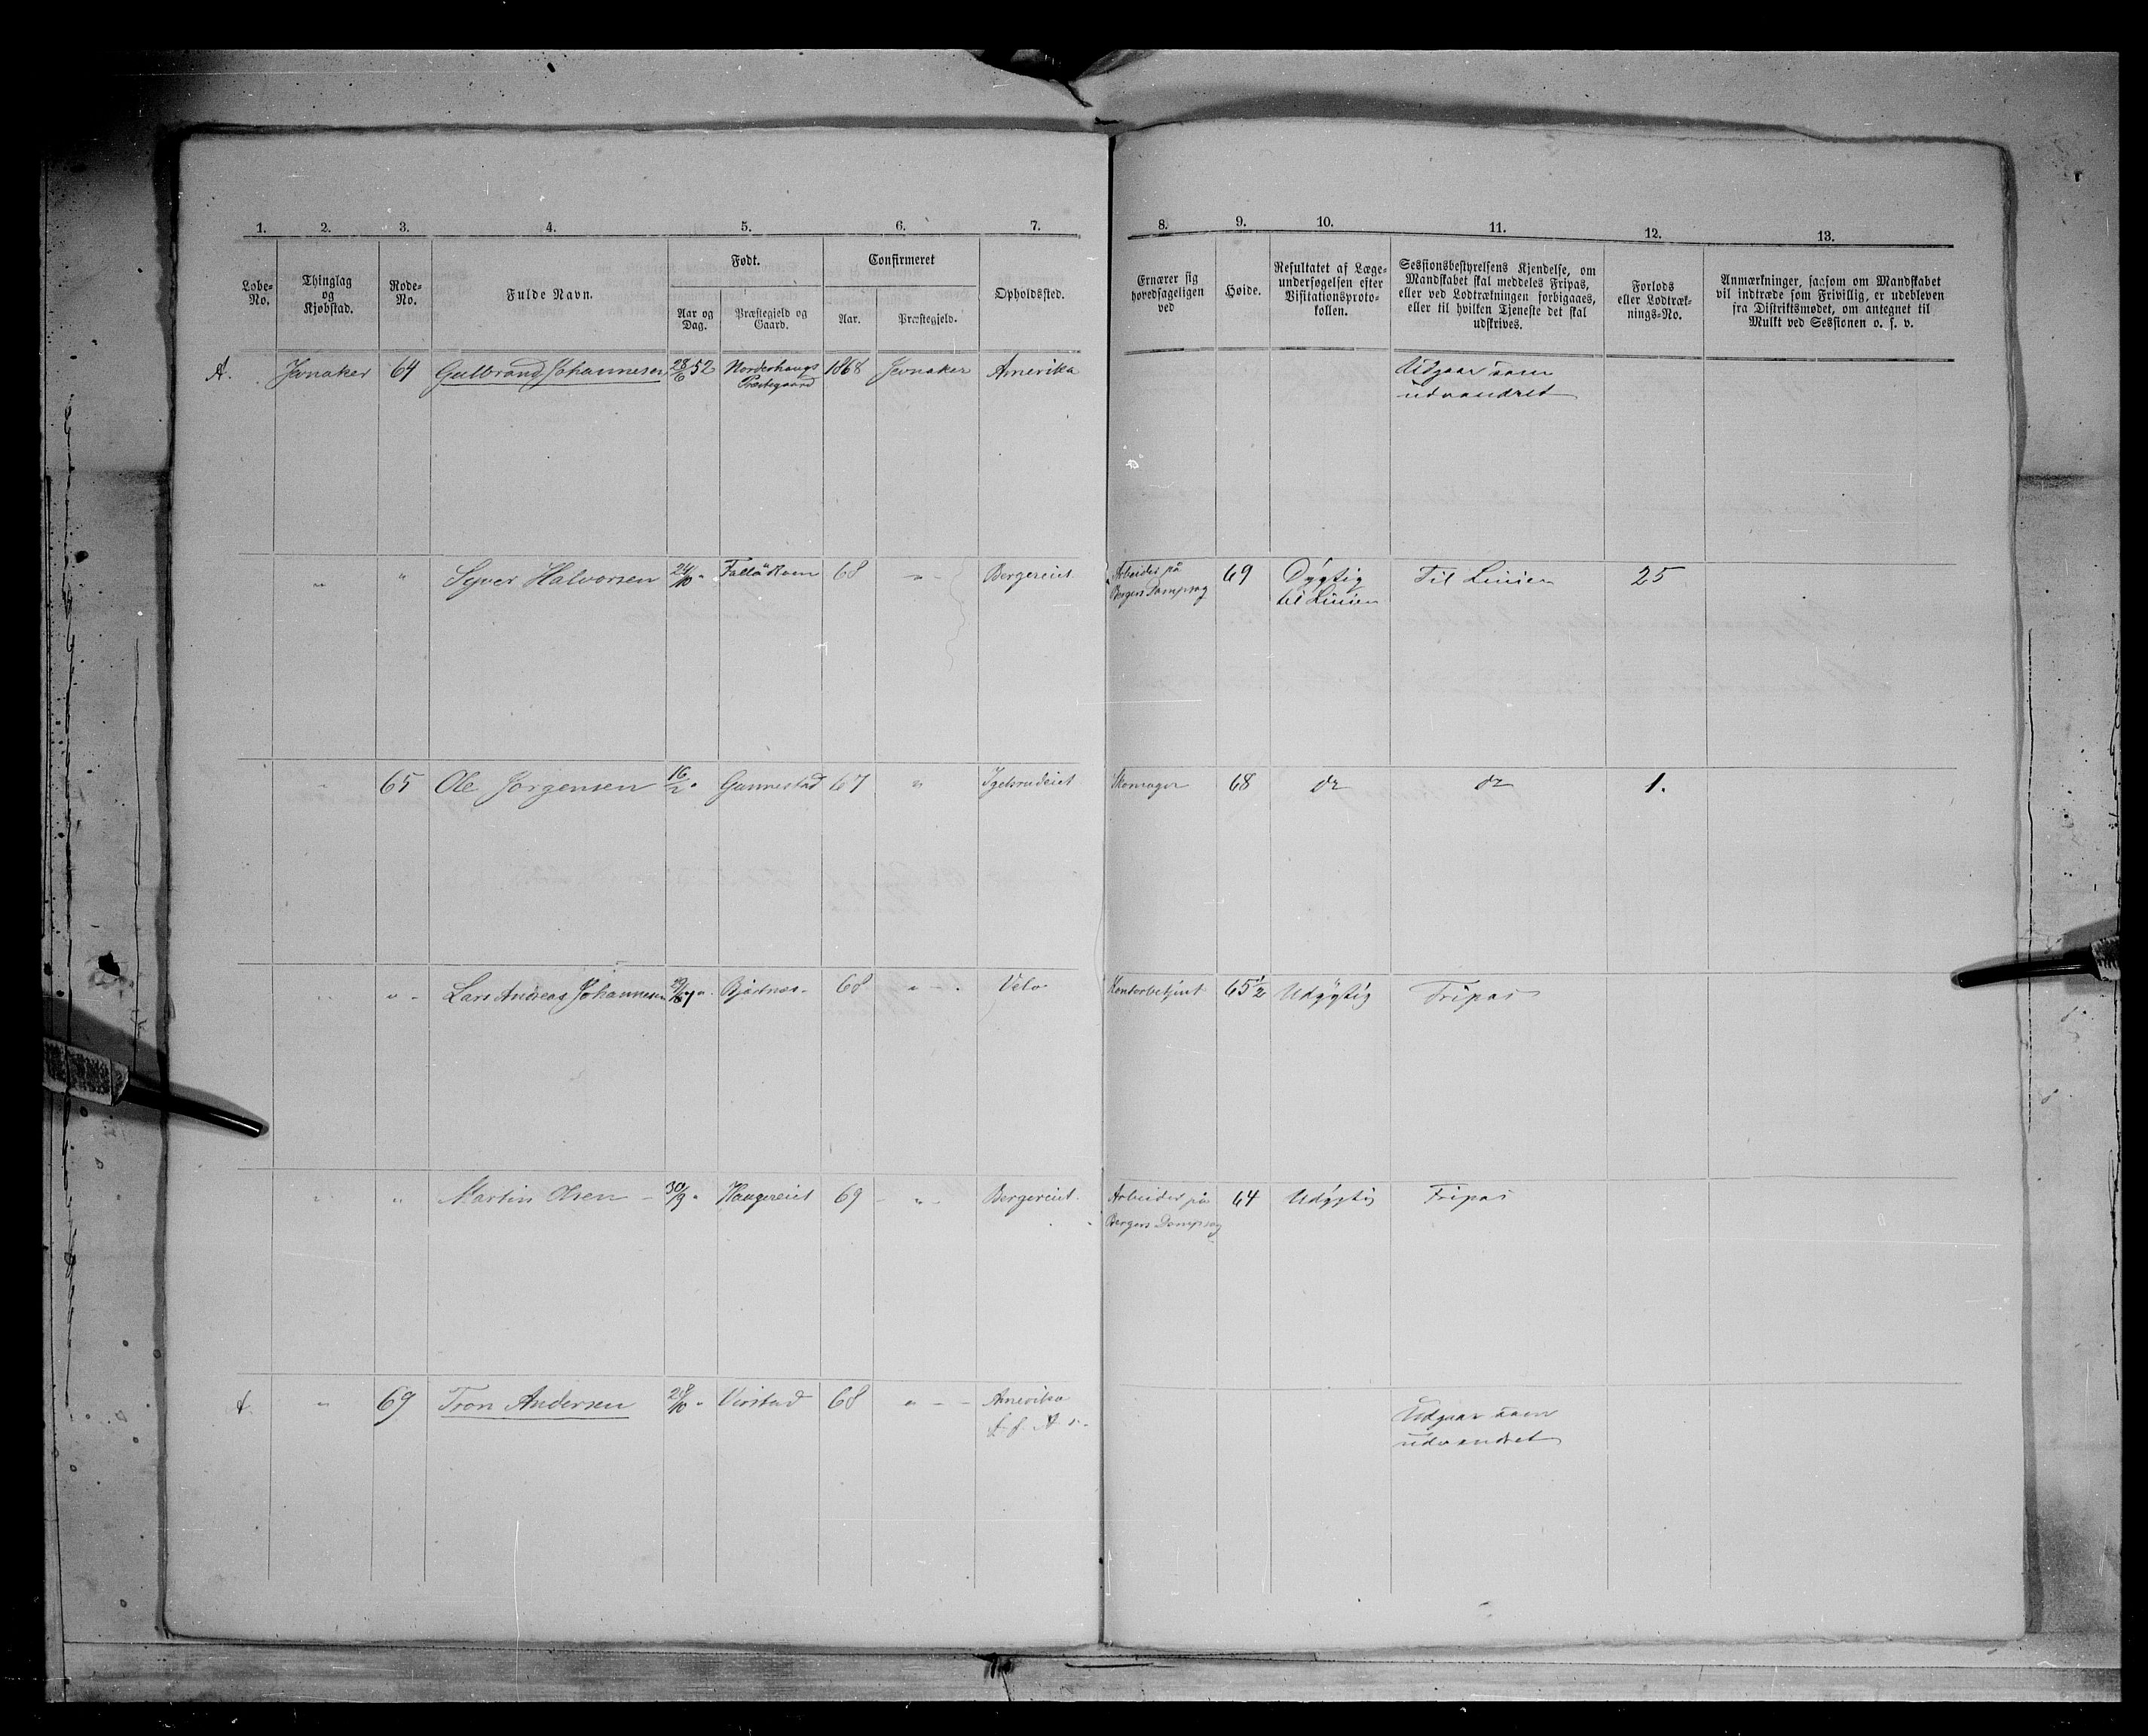 1. 2. 3. 4. 5. 6. 7. 8. 9. 10. 11. 12. 13.
Løbe-No. Thinglag og Kjøbstad. Rode-No. Fulde Navn. Født. Confirmeret Opholdssted.
Aar og Dag. Præstegjeld og Gaard. Aar. Præstegjeld.
Ernærer sig hovedsageligen ved
Høide.
Resultatet af Læge-
undersøgelsen efter
Visitationsproto-
kollen.
Sessionsbestyrelsens Kjendelse, om
Mandskabet skal meddeles Fripas,
eller ved Lodtrækningen forbigaaes,
eller til hvilken Tjeneste det skal
udskrives.
Forlods
eller Lodtræk-
nings-No.
Anmærkninger, saasom om Mandskabet
vil indtræde som Frivillig, er udebleven
fra Distriktsmødet, om antegnet til
Mulkt ved Sessionen o. s. v.
A. Jevnaker 64 Gulbrand Johannesen 28/6 52 Norderhougs 1868 Jevnaker Amerika Udgaar som
Præstegaard udvandret
" " Syver Halvorsen 24/10 " 68 " Bergereiet Arbeider på 69 Dygtig Til Linien 25
Bergers Dampsag til Linien
" 65 Ole Jørgensen 16/2 " Gunnestad 67 " Igelsrudeiet Skomager 68 do do 1.
" " Lars Andreas Johannesen Bjertnes 68 " Velo Kontorbetjent 65 1/2 Udygtig Fripas
" " Martin Olsen 30/9 " Haugereiet 69 " Bergereiet Arbeider på 64 Udygtig Fripas
Bergers Dampsag
A. " 69 Tron Andersen 28/10 " Virstad 68 " Amerika Udgaar som
udvandret